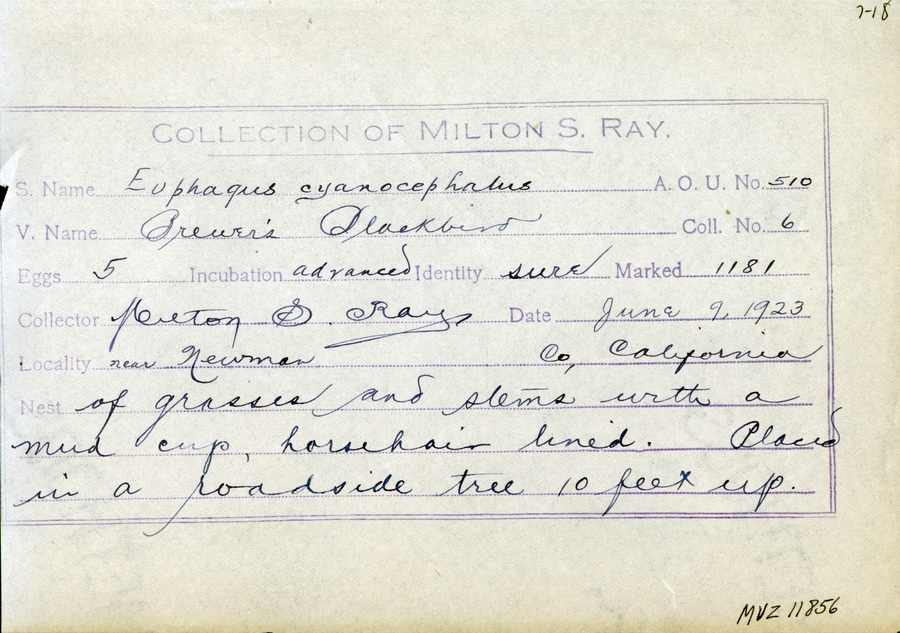 7-18
COLLECTION OF MILTON S. RAY.
S. Name Euphagus cyanocephalus A. O. U. No. 510
V. Name Brewer's Blackbird Coll. No. 6
Eggs 5 Incubation advanced Identity sure Marked 1181
Collector Milton S. Ray Date June 9, 1923
Locality near Newman Co, California
Nest of grasses and stems with a
mud cup, horsehair lined. Placed
in a roadside tree 10 feet up.
MVZ 11856